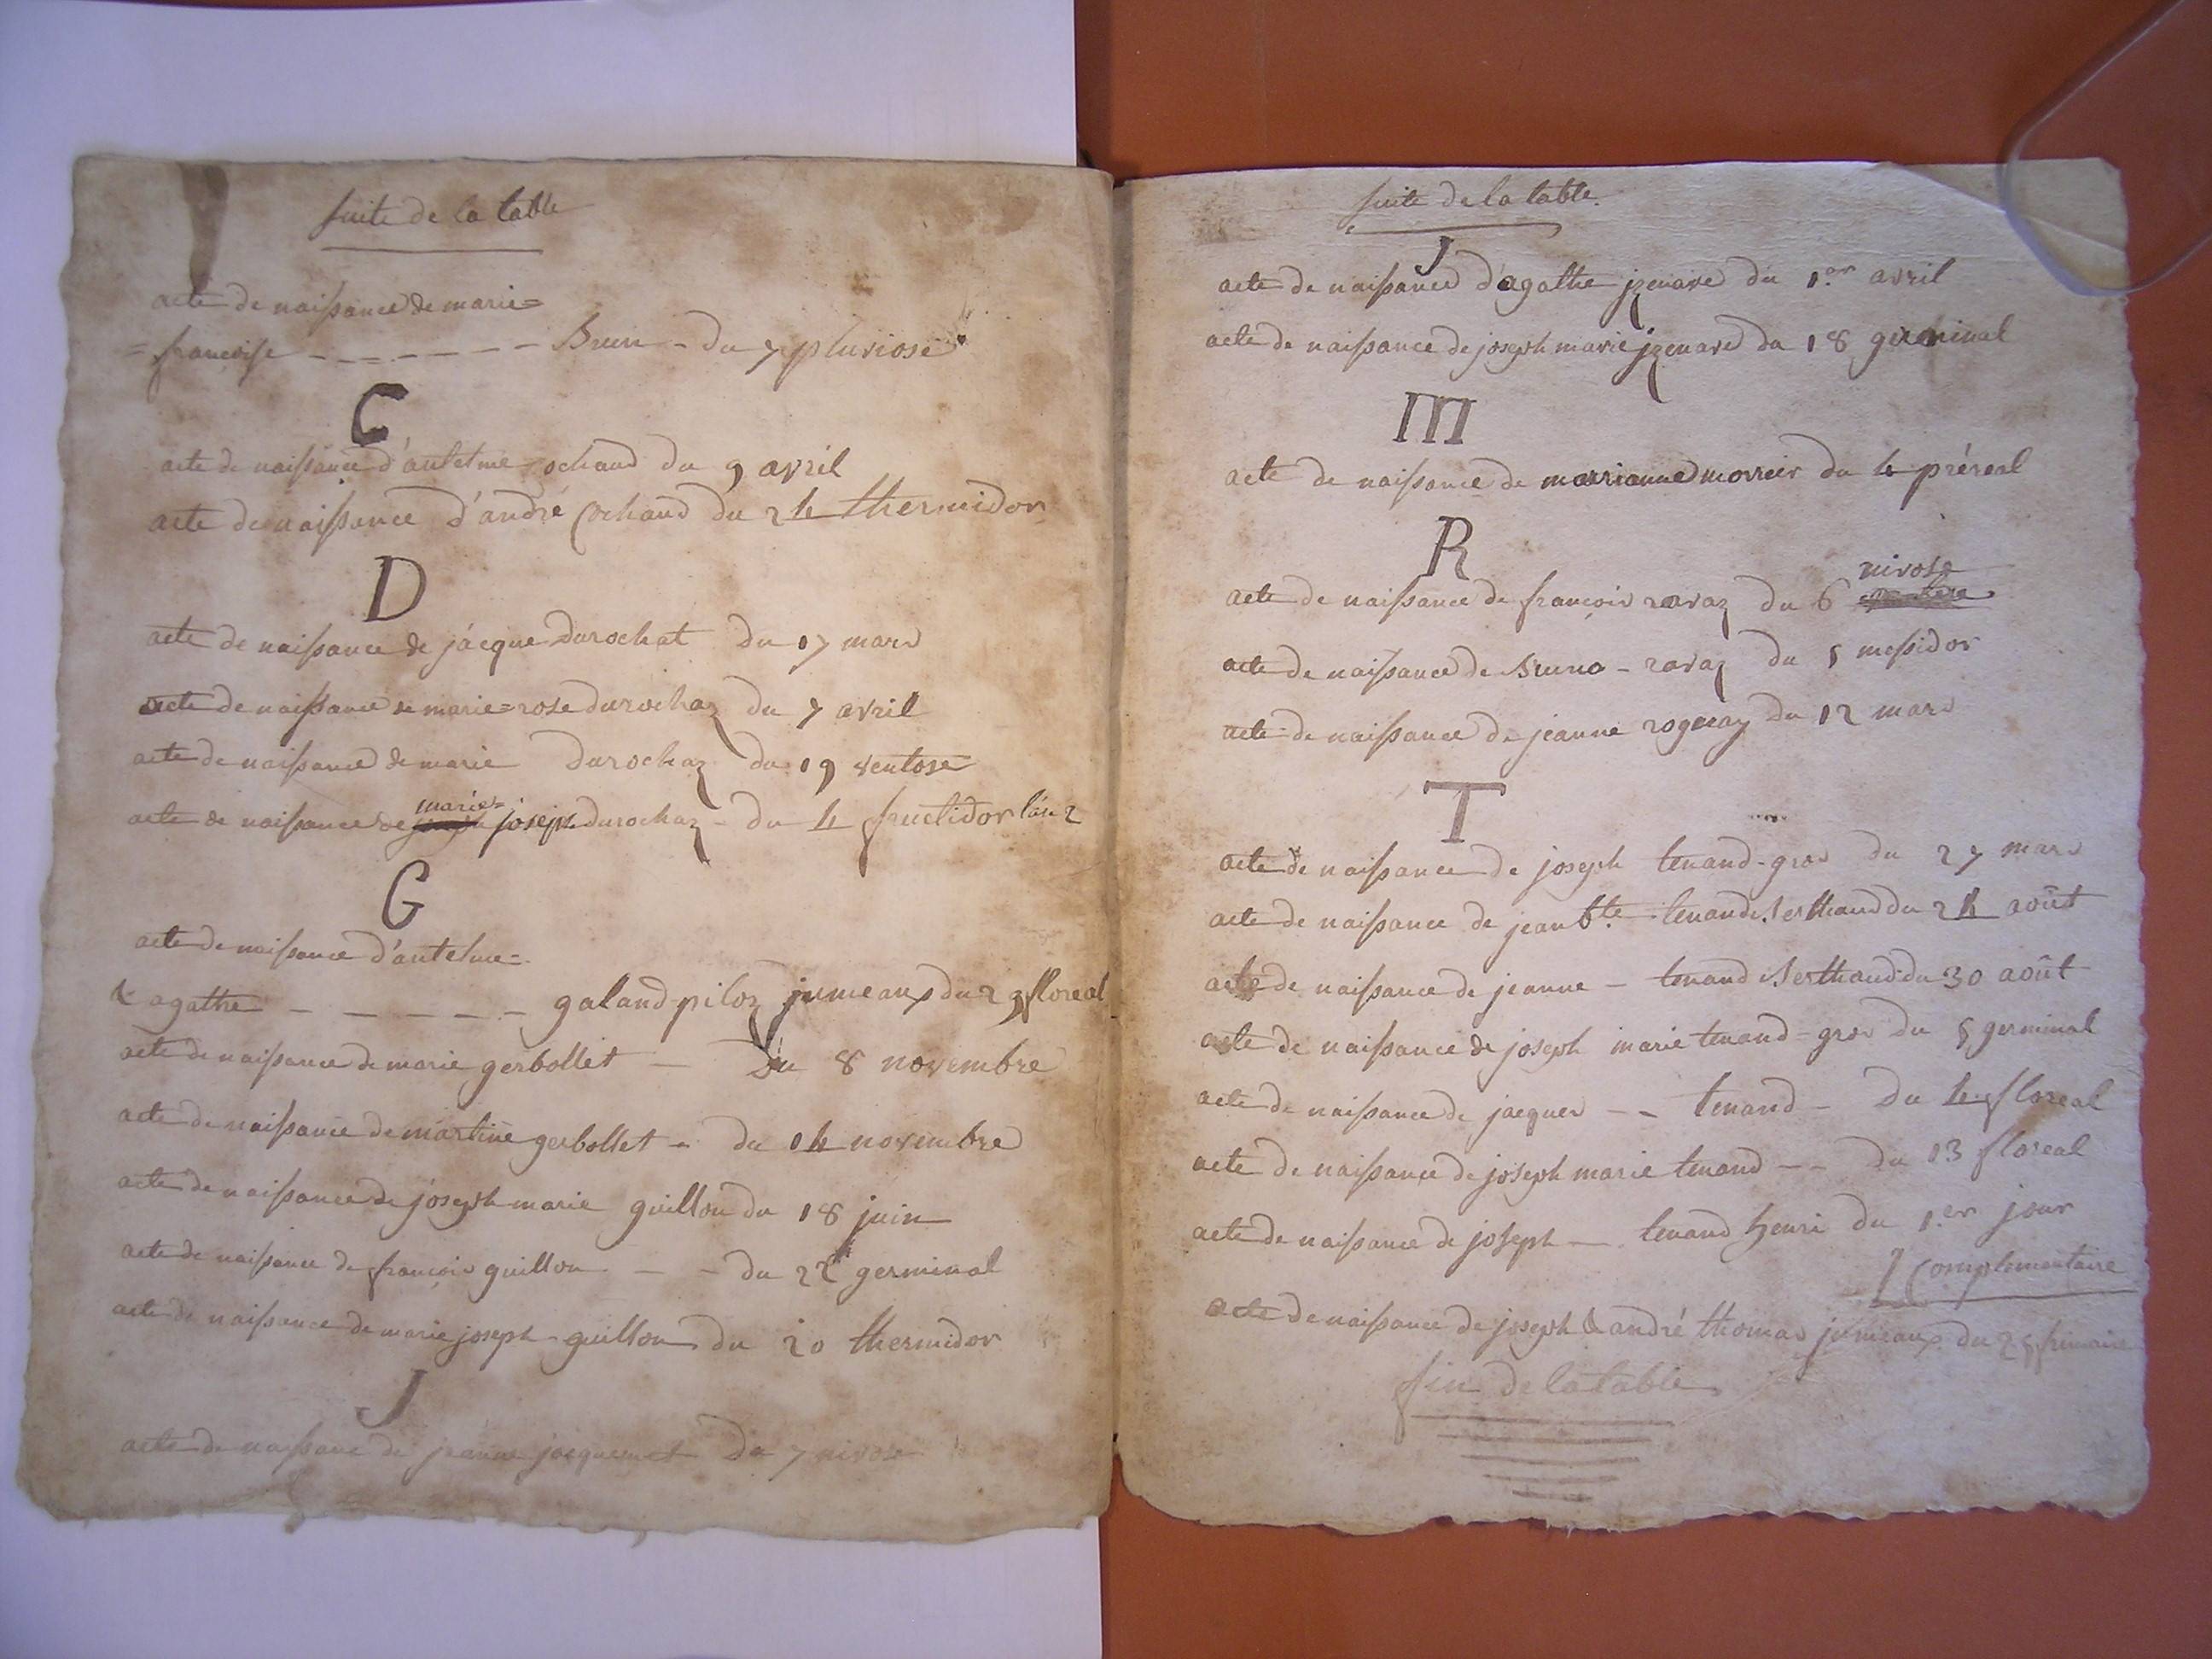 suite de la table
acte de naissance de marie=
=françoise - - - - - - - Brun - du 7 pluviose
C
acte de naissance d'antelme cochand du 9 avril
acte de naissance d'andré Cochand du 24 thermidor
D
acte de naissance de jacque durochat du 17 mars
acte de naissance de marie=rose durochaz du 7 avril
acte de naissance de marie durochaz du 19 ventose
marie=
acte de naissance de joseph durochaz - du 4 fructidor l'an 2
G
acte de naissance d'antelme=
& agathe - - - - - - galand-piloz jumeaux du 29 floreal
acte de naissance de marie gerbollet - Du 8 novembre
acte de naissance de martine gerbollet - du 14 novembre
acte de naissance de joseph marie guillon du 18 juin
acte de naissance de françois guillon - - du germinal
acte de naissance de marie joseph guillon du 20 thermidor
J
acte de naissance de jeanne jacquemet Du 7 nivose
suite de la table.
J
acte de naissance d'agathe jzenard du 1.er avril
acte de naissance de joseph marie jzenard du 18 germinal
M
acte de naissance de marrianne du 4 préreal
R
nivose
acte de naissance de françois ravaz du 6
acte de naissance de Bruno - ravaz du 5 messidor
acte de naissance de jeanne rogeray du 12 mars
T
acte de naissance de joseph tenand-gros du 27 mars
acte de naissance de jean b.te tenand Berthaud du 24 août
acte de naissance de jeanne - tenand Berthaud du 30 août
acte de naissance de joseph marie tenand=gros du 5 germinal
acte de naissance de jacques - - tenand - du 14 floreal
acte de naissance de joseph marie tenand - - du 13 floreal
acte de naissance de joseph - tenand henri du 1.er jour
Complementaire
acte de naissance de joseph & andré thomas jumeaux du 25 frimaire
fin de la table